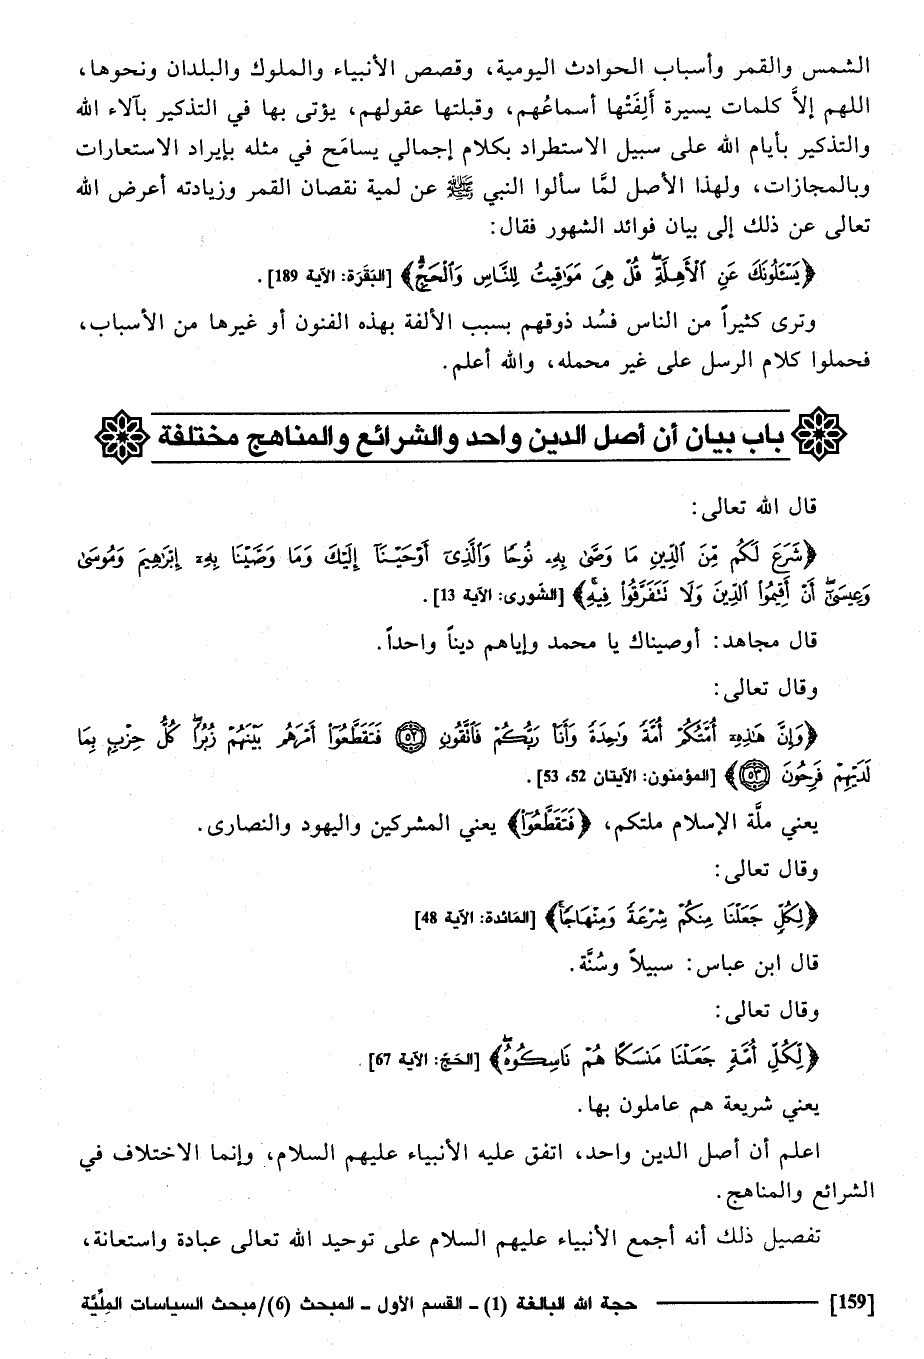 الشمس والقمر وأسباب الحوادث اليومية، وقصص الأنبياء والملوك والبلدان ونحوها،
اللهم إلاَّ كلمات يسيرة أَلِفَتْها أسماعُهم، وقبلتها عقولهم، يؤتى بها في التذكير بآلاء الله
والتذكير بأيام الله على سبيل الاستطراد بكلام إجمالي يسامَح في مثله بإيراد الاستعارات
وبالمجازات، ولهذا الأصل لمَّا سألوا النبي ﷺ عن لمية نقصان القمر وزيادته أعرض الله
تعالى عن ذلك إلى بيان فوائد الشهور فقال:
﴿يَسْـَٔلُونَكَ عَنِ ٱلْأَهِلَّةِۖ قُلْ هِىَ مَوَٰقِيتُ لِلنَّاسِ وَٱلْحَجِّۗ﴾ [البَقَرَة: الآية 189].
وترى كثيراً من الناس فسُد ذوقهم بسبب الألفة بهذه الفنون أو غيرها من الأسباب،
فحملوا كلام الرسل على غير محمله، والله أعلم.
باب بيان أن أصل الدين واحد والشرائع والمناهج مختلفة
قال الله تعالى:
﴿شَرَعَ لَكُم مِّنَ ٱلدِّينِ مَا وَصَّىٰ بِهِۦ نُوحًا وَٱلَّذِىٓ أَوْحَيْنَآ إِلَيْكَ وَمَا وَصَّيْنَا بِهِۦٓ إِبْرَٰهِيمَ وَمُوسَىٰ
وَعِيسَىٰٓۖ أَنْ أَقِيمُوا۟ ٱلدِّينَ وَلَا تَتَفَرَّقُوا۟ فِيهِۚ﴾ [الشّورى: الآية 13].
قال مجاهد: أوصيناك يا محمد وإياهم ديناً واحداً.
وقال تعالى:
﴿وَإِنَّ هَٰذِهِۦٓ أُمَّتُكُمْ أُمَّةً وَٰحِدَةً وَأَنَا۠ رَبُّكُمْ فَٱتَّقُونِ ۝٥٢ فَتَقَطَّعُوٓا۟ أَمْرَهُم بَيْنَهُمْ زُبُرًاۖ كُلُّ حِزْبٍۭ بِمَا
لَدَيْهِمْ فَرِحُونَ ۝٥٣﴾ [المؤمنون: الآيتان 52، 53].
يعني ملَّة الإسلام ملتكم، ﴿فَتَقَطَّعُوٓا۟﴾ يعني المشركين واليهود والنصارى.
وقال تعالى:
﴿لِكُلٍّ جَعَلْنَا مِنكُمْ شِرْعَةً وَمِنْهَاجًاۚ﴾ [المَائدة: الآية 48]
قال ابن عباس: سبيلاً وسُنَّة.
وقال تعالى:
﴿لِّكُلِّ أُمَّةٍ جَعَلْنَا مَنسَكًا هُمْ نَاسِكُوهُۖ﴾ [الحَجّ: الآية 67].
يعني شريعة هم عاملون بها.
اعلم أن أصل الدين واحد، اتفق عليه الأنبياء عليهم السلام، وإنما الاختلاف في
الشرائع والمناهج.
تفصيل ذلك أنه أجمع الأنبياء عليهم السلام على توحيد الله تعالى عبادة واستعانة،
[159] حجة الله البالغة (1) - القسم الأول - المبحث (6)/مبحث السياسات المِلِّيَّة